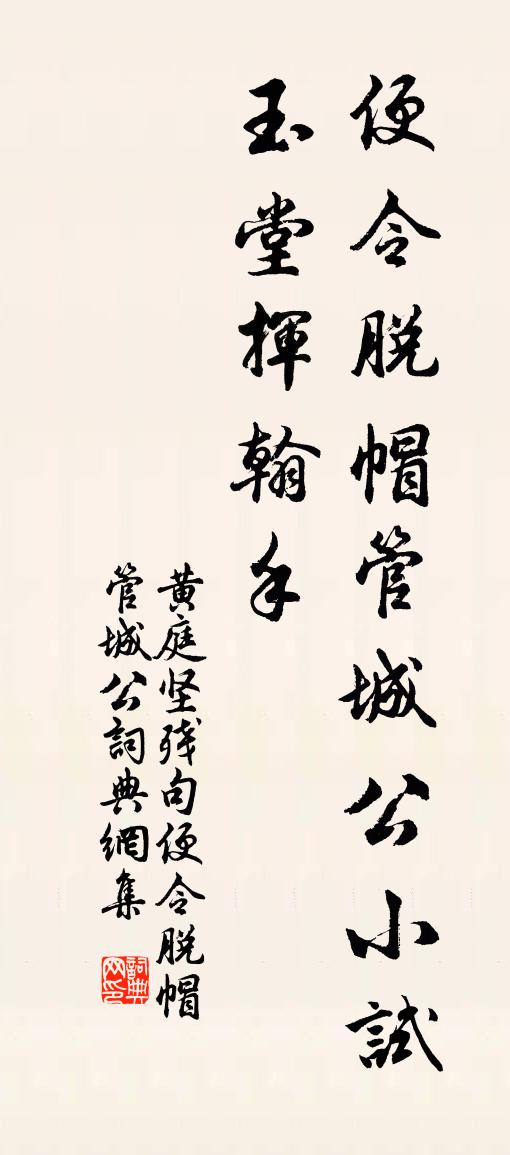 便令脫帽管城公小試
玉堂揮翰手
黄庭坚残句便令脫帽
管城公詞典網集
詞典网印